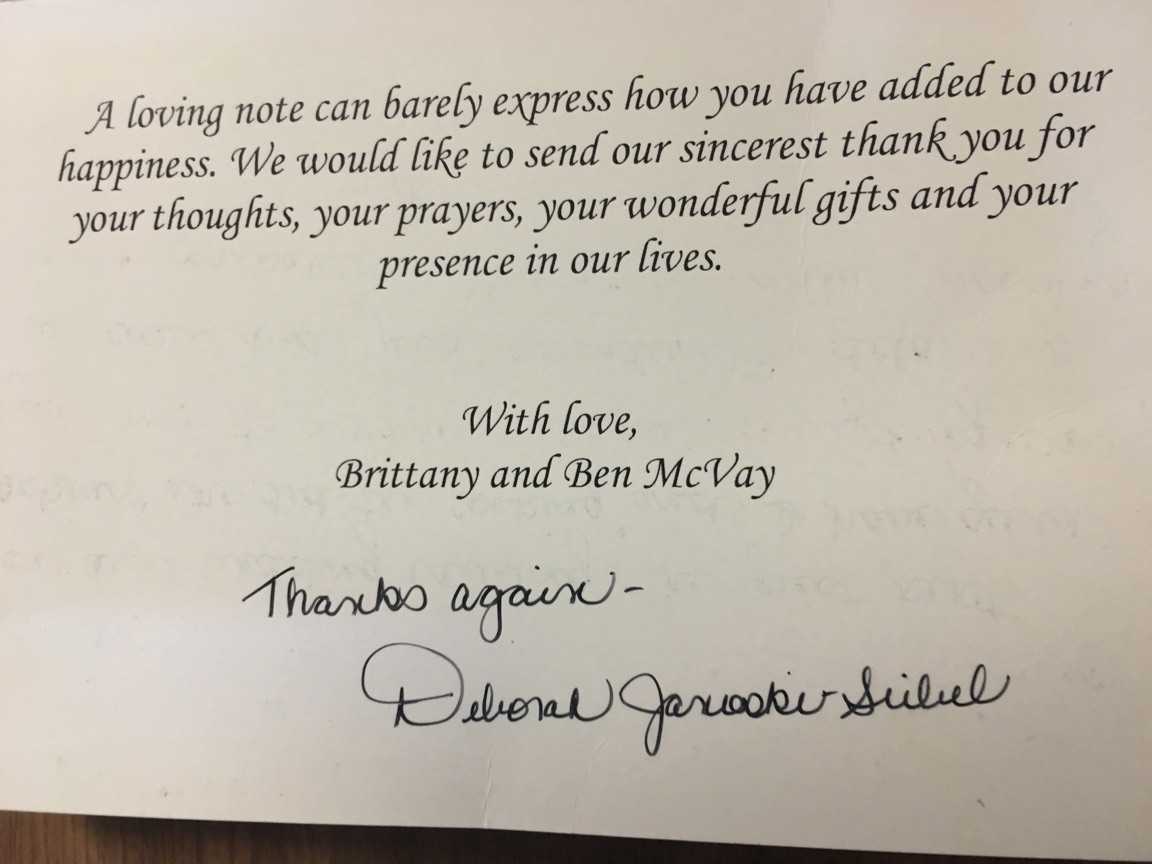 A loving note can barely express how you have added to our
happiness. We would like to send our sincerest thank you for
your thoughts, your prayers, your wonderful gifts and your
presence in our lives.
With love,
Brittany and Ben McVay
Thanks again -
Deborah